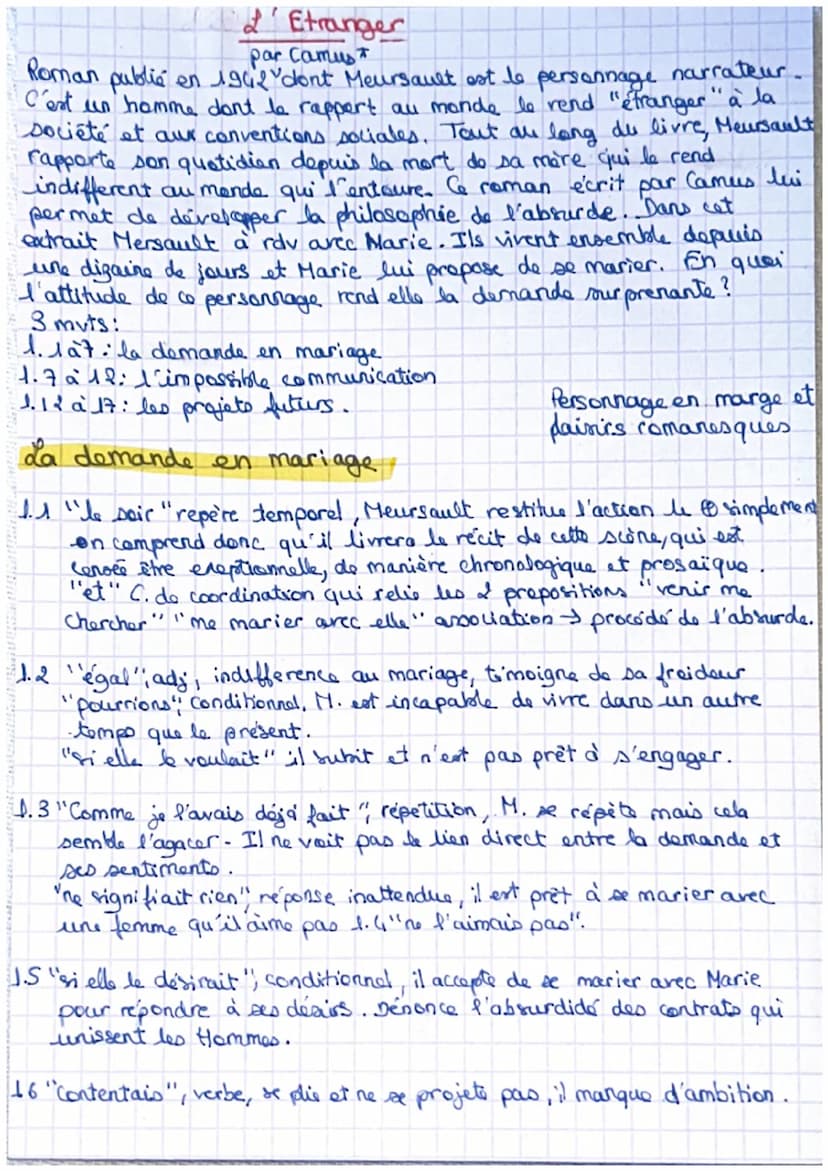 L'Etranger
par Camus*
Roman publié en 1942 dont Meursault est le personnage narrateur.
C'est un homme dont le rapport au monde le rend "étranger" à la
société et aux conventions sociales. Tout au long du livre, Meursault
rapporte son quotidien depuis la mort de sa mère qui le rend
indifférent au monde qui l'entoure. Ce roman écrit par Camus lui
permet de développer la philosophie de l'absurde. Dans cet
extrait Mersault à rdv avec Marie. Ils vivent ensemble depuis
une dizaine de jours et Marie lui propose de se marier. En quoi
l'attitude de ce personnage rend elle la demande surprenante ?
3 mvts :
l.1à7 : la demande en mariage
l.7 à 12 : l'impossible communication
l.12 à 17 : les projets futurs.
Personnage en marge et
plaisirs romanesques
La demande en mariage
l.1 "le soir" repère temporel, Meursault restitue l'action le ⊕ simplement
on comprend donc qu'il livrera le récit de cette scène, qui est
censée être exeptionnelle, de manière chronologique et prosaïque.
"et" C. de coordination qui relie les 2 propositions "venir me
chercher" "me marier avec elle" association → procédé de l'absurde.
l.2 "égal", adj, indifférence au mariage, témoigne de sa froideur
"pourrions", conditionnel, M. est incapable de vivre dans un autre
temps que le présent.
"si elle le voulait" il subit et n'est pas prêt à s'engager.
l.3 "Comme je l'avais déjà fait", répétition, M. se répète mais cela
semble l'agacer. Il ne voit pas le lien direct entre la demande et
ses sentiments.
"ne signifiait rien", réponse inattendue, il est prêt à se marier avec
une femme qu'il aime pas l.4 "ne l'aimais pas".
l.5 "si elle le désirait", conditionnel, il accepte de se marier avec Marie
pour répondre à ses désirs. Dénonce l'absurdidé des contrats qui
unissent les Hommes.
l6 "contentais", verbe, se plie et ne se projete pas, il manque d'ambition.